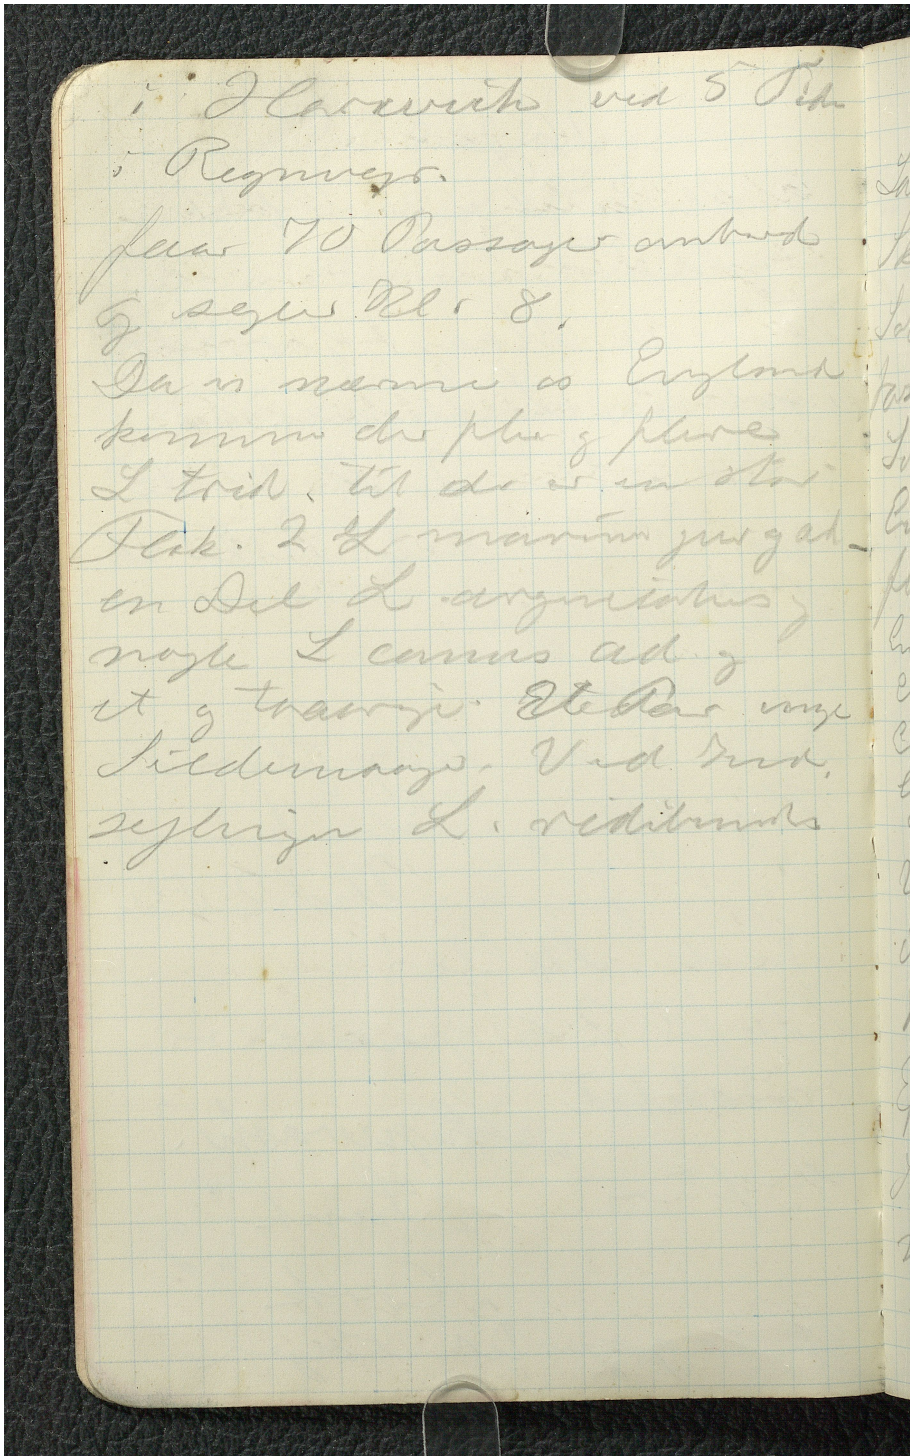 i Harwich ved 5 Tiden
i Regnvejr.
faar 70 Passager ombord
og sejler Kl. 8.
Da vi nærme os England
kommer der flere og flere
L. trid. til der er en stor
Flok. 2 L marinus juv og ad.
en Del L argentatus og
nogle L canus ad og
et og toaarige. Et Par unge
Sildemaager. Ved Ind-
sejlingen L. ridibundus